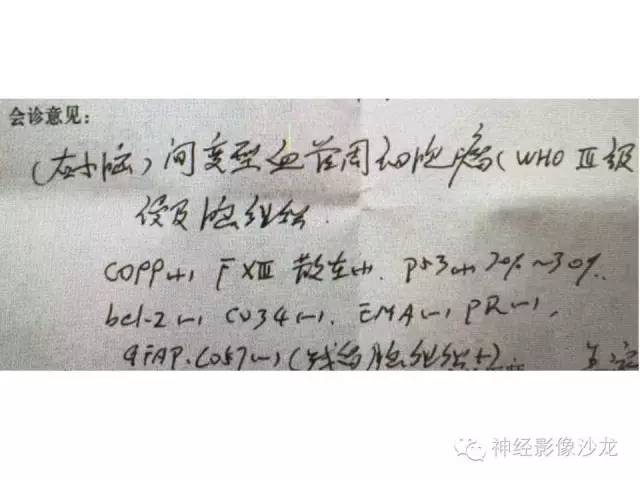 会诊意见:
(右小脑)间变型血管周细胞瘤(WHO III级
侵及脑组织.
COPP(+) FXIII 散在(+). P53(+) 20%~30%.
bcl-2(-) CD34(-). EMA(-) PR(-).
GFAP. CD57(-)(残留脑组织+)
神经影像沙龙